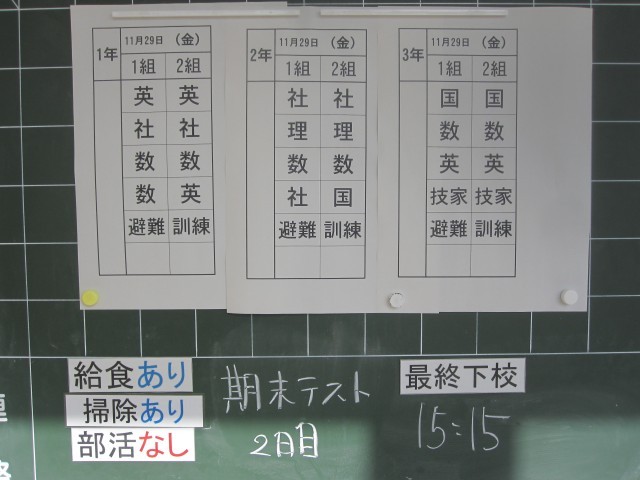 1年 11月29日 （金）
1組 2組
英 英
社 社
数 数
数 英
避難 訓練
2年 11月29日 （金）
1組 2組
社 社
理 理
数 数
社 国
避難 訓練
3年 11月29日 （金）
1組 2組
国 国
数 数
英 英
技家 技家
避難 訓練
給食あり
掃除あり
部活なし
期末テスト
2日目
最終下校
15:15